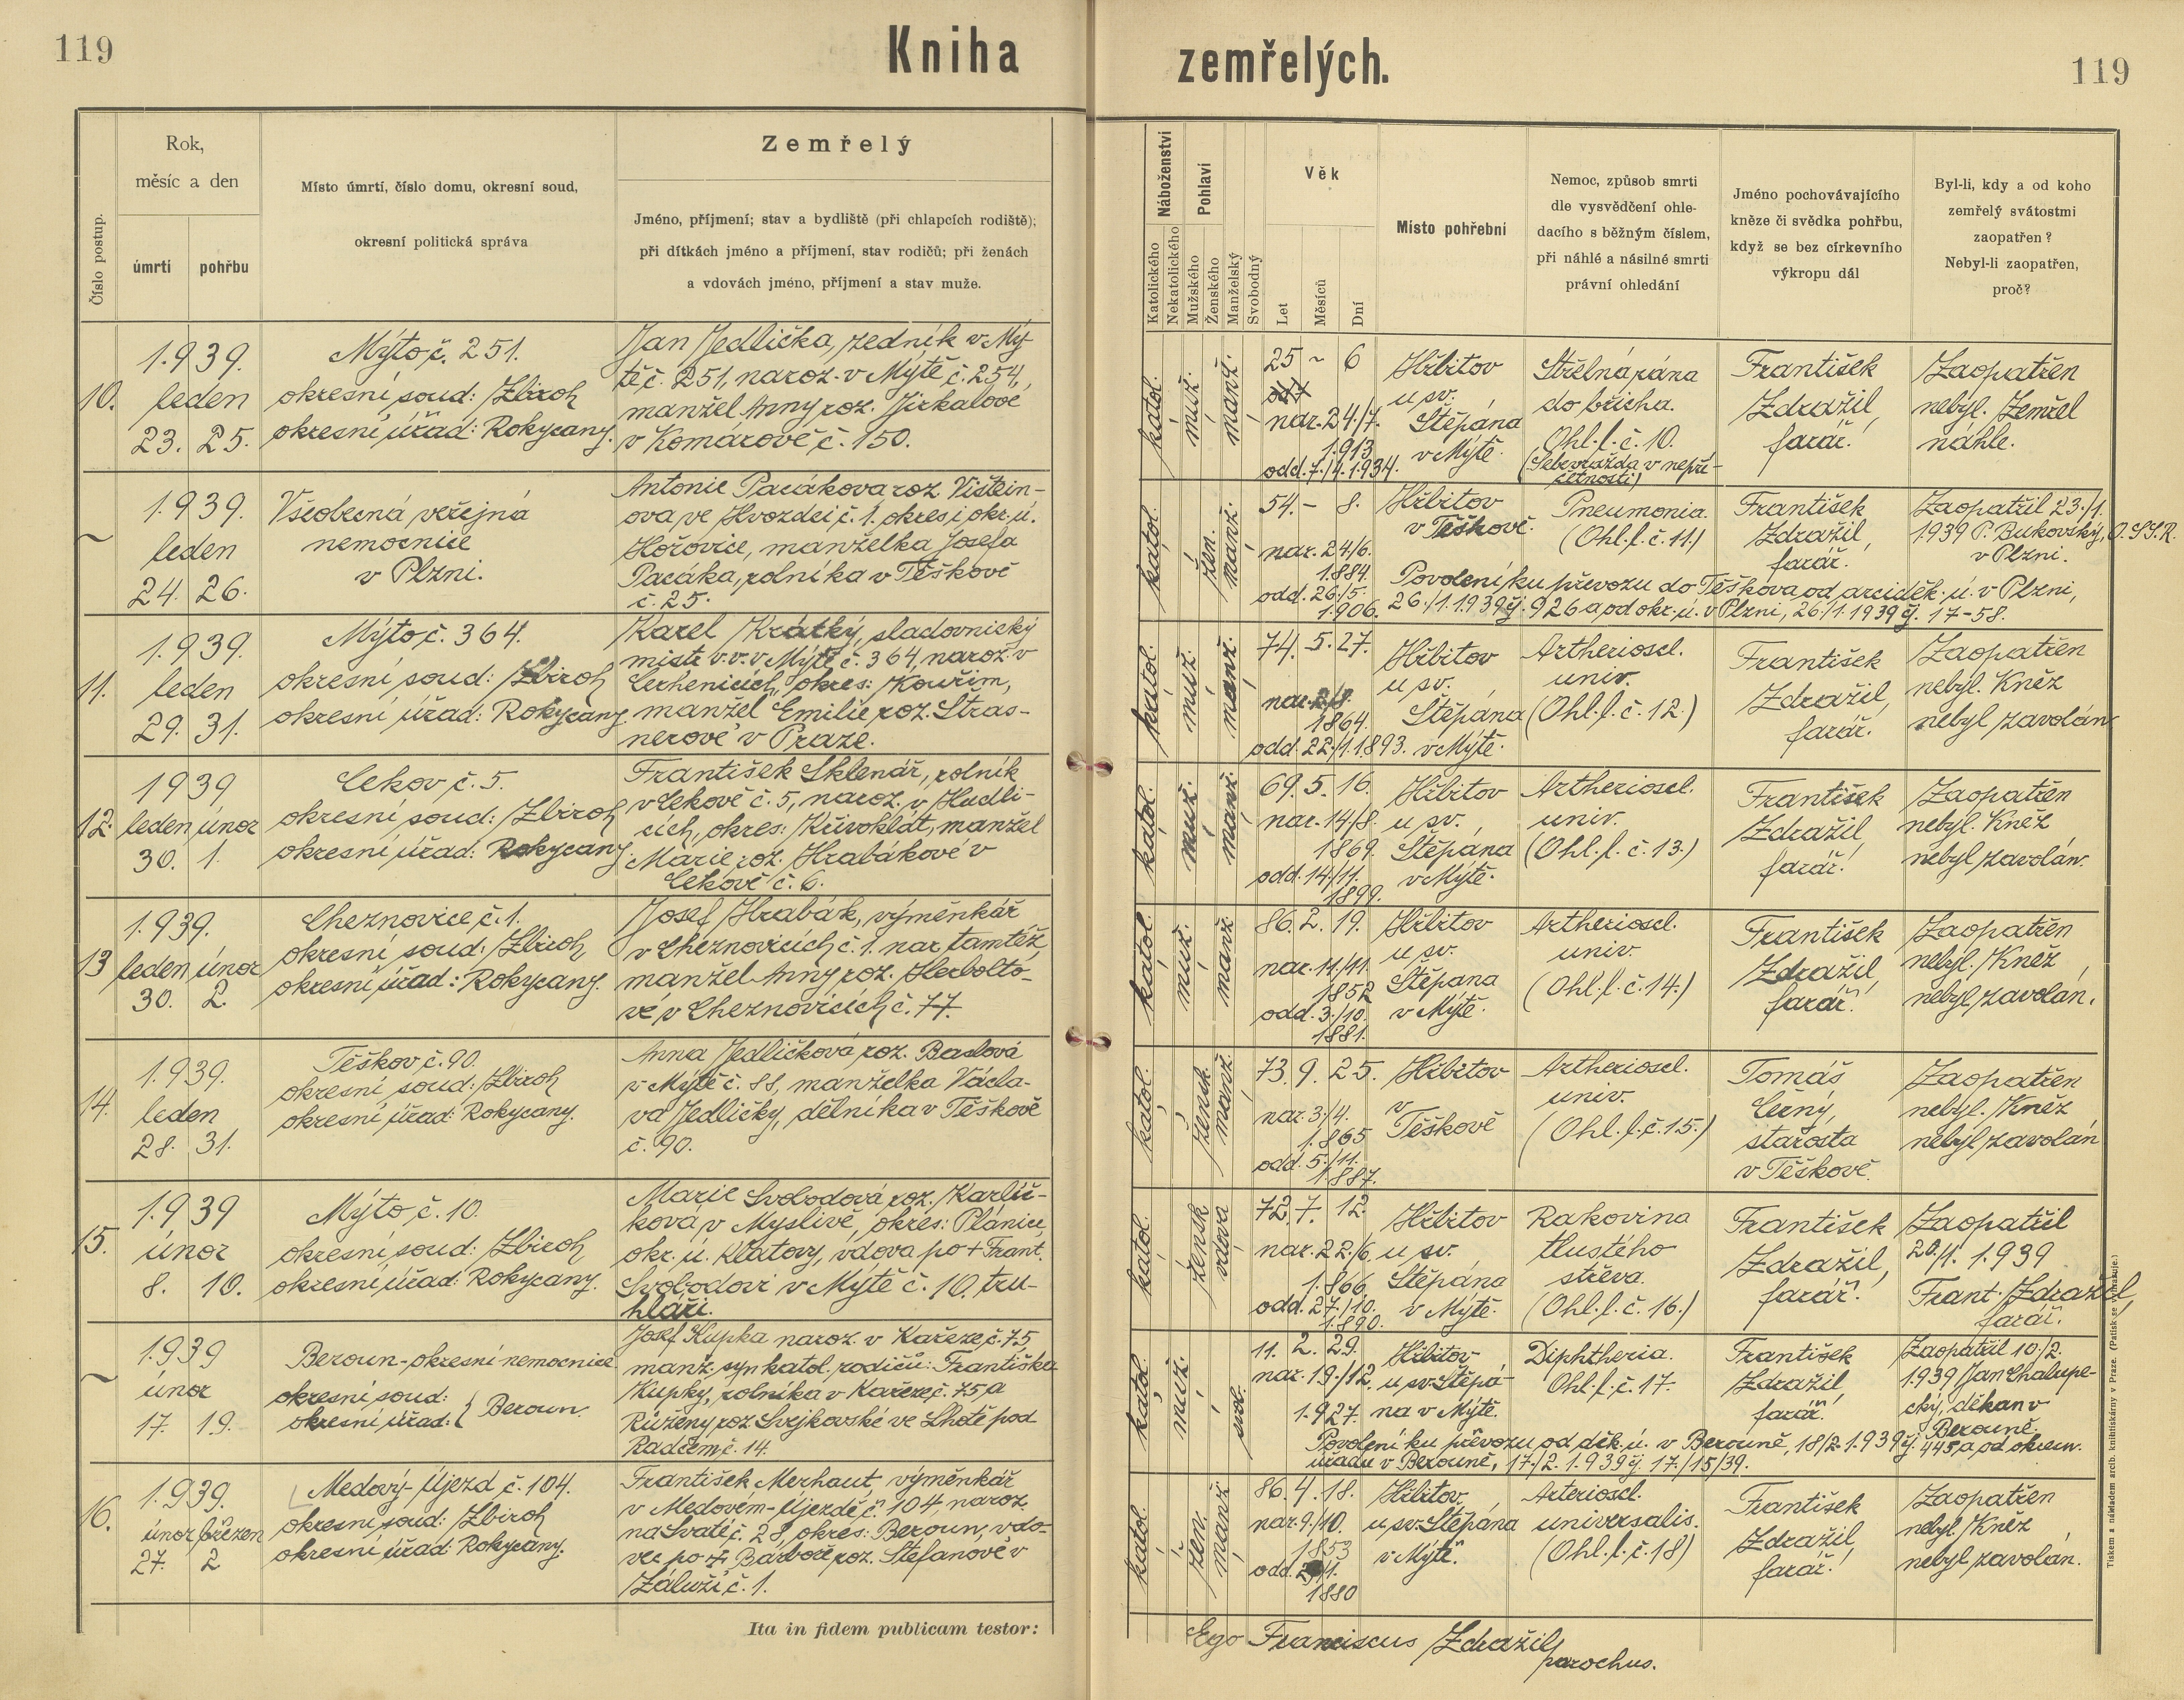 119
Kniha
zemřelých.
119
Číslo postup.
Rok,
měsíc a den
úmrtí
pohřbu
Místo úmrtí, číslo domu, okresní soud,
okresní politická správa
Zemřelý
Jméno, příjmení; stav a bydliště (při chlapcích rodiště);
při dítkách jméno a příjmení, stav rodičů; při ženách
a vdovách jméno, příjmení a stav muže.
Náboženství
Katolického
Nekatolického
Pohlaví
Mužského
Ženského
Manželský
Svobodný
Věk
Let
Měsíců
Dní
Místo pohřební
Nemoc, způsob smrti
dle vysvědčení ohle-
dacího s běžným číslem,
při náhlé a násilné smrti
právní ohledání
Jméno pochovávajícího
kněze či svědka pohřbu,
když se bez církevního
výkropu dál
Byl-li, kdy a od koho
zemřelý svátostmi
zaopatřen?
Nebyl-li zaopatřen,
proč?
10.
1.939.
leden
23. 25.
Mýto č. 251.
okresní soud: Zbiroh
okresní úřad: Rokycany.
Jan Jedlička, zedník v Mý-
tě č. 251, naroz. v Mýtě č. 254,
manžel Anny roz. Jirkalové
v Komárově č. 150.
katol.
muž.
manž.
25 ~ 6
nar. 24./7.
1.913
odd. 7./4. 1.934.
Hřbitov
u sv.
Štěpána
v Mýtě.
Střelná rána
do břicha.
Ohl. l. č. 10.
(Sebevražda v nepří-
četnosti)
František
Zdražil,
farář.
Zaopatřen
nebyl. Zemřel
náhle.
~
1.939.
leden
24. 26.
Všeobecná veřejná
nemocnice
v Plzni.
Antonie Pacákova roz. Vištein-
ova ve Hvozdci č. 1. okres i okr. ú.
Hořovice, manželka Josefa
Pacáka, rolníka v Těškově
č. 25.
katol.
žen.
manž.
54. - 8.
nar. 24/6.
1.884.
odd. 26/5.
1.906.
Hřbitov
v Těškově.
Pneumonia.
(Ohl. l. č. 11.)
František
Zdražil,
farář.
Zaopatřil 23./1.
1.939 P. Bukovský, O.SS.R.
v Plzni.
Povolení ku převozu do Těškova od arciděk. ú. v Plzni,
26./1. 1.939 čj. 926 a od okr. ú. v Plzni, 26./1. 1939 čj. 17-58.
11.
1.939.
leden
29. 31.
Mýto č. 364.
okresní soud: Zbiroh
okresní úřad: Rokycany
Karel Krátký, sladovnický
mistr v.v. v Mýtě č. 364, naroz. v
Cerhenicích, okres: Kouřim,
manžel Emilie roz. Stras-
nerové v Praze.
katol.
muž.
manž.
74. 5. 27.
nar. 2/8.
1864.
odd. 22./1. 1.893.
Hřbitov
u sv.
Štěpána
v Mýtě.
Artherioscl.
univ.
(Ohl. l. č. 12.)
František
Zdražil,
farář.
Zaopatřen
nebyl. Kněz
nebyl zavolán.
12.
1939
leden únor
30. 1.
Cekov č. 5.
okresní soud: Zbiroh
okresní úřad: Rokycany.
František Sklenář, rolník
v Cekově č. 5, naroz. v Hudli-
cích, okres: Křivoklát, manžel
Marie roz. Hrabákové v
Cekově č. 6.
katol.
muž.
manž.
69. 5. 16.
nar. 14/8.
1869.
odd. 14/11.
1899.
Hřbitov
u sv.
Štěpána
v Mýtě.
Artherioscl.
univ.
(Ohl. l. č. 13.)
František
Zdražil,
farář.
Zaopatřen
nebyl. Kněz
nebyl zavolán.
13
1.939.
leden únor
30. 2.
Cheznovice č. 1.
okresní soud: Zbiroh
okresní úřad: Rokycany.
Josef Hrabák, výměnkář
v Cheznovicích č. 1. nar. tamtéž,
manžel Anny roz. Herbolto-
vé v Cheznovicích č. 77.
katol.
muž.
manž.
86. 2. 19.
nar. 11./11.
1852
odd. 3./10.
1881.
Hřbitov
u sv.
Štěpana
v Mýtě.
Artherioscl.
univ.
(Ohl. l. č. 14.)
František
Zdražil,
farář.
Zaopatřen
nebyl. Kněz
nebyl zavolán.
14.
1.939.
leden
28. 31.
Těškov č. 90.
okresní soud: Zbiroh
okresní úřad: Rokycany.
Anna Jedličková roz. Baslová
v Mýtě č. 88, manželka Václa-
va Jedličky, dělníka v Těškově
č. 90.
katol.
žensk.
manž.
73. 9. 25.
nar. 3./4.
1.865
odd. 5./11.
1.887.
Hřbitov
v
Těškově
Artherioscl.
univ.
(Ohl. l. č. 15.)
Tomáš
Černý,
starosta
v Těškově.
Zaopatřen
nebyl. Kněz
nebyl zavolán
15.
1.939
únor
8. 10.
Mýto č. 10.
okresní soud: Zbiroh
okresní úřad: Rokycany.
Marie Svobodová roz. Karlíč-
ková v Myslívě, okres: Plánice,
okr. ú. Klatovy, vdova po + Frant.
Svobodovi v Mýtě č. 10, tru-
hláři.
katol.
žensk
vdova
72. 7. 12.
nar. 22./6.
1.866.
odd. 27./10.
1.890.
Hřbitov
u sv.
Štěpána
v Mýtě.
Rakovina
tlustého
střeva.
(Ohl. l. č. 16.)
František
Zdražil,
farář.
Zaopatřil
20./1. 1.939
Frant. Zdražil,
farář.
~
1.939
únor
17. 19.
Beroun-okresní nemocnice.
okresní soud:
okresní úřad: } Beroun.
Josef Kupka naroz. v Kařeze č. 75
manž. syn katol. rodičů: Františka
Kupky, rolníka v Kařeze č. 75 a
Růženy roz. Svejkovské ve Lhotě pod
Radčem č. 14.
katol.
muž.
svob.
11. 2. 29.
nar. 19./12.
1.927.
Hřbitov
u sv. Štěpá-
na v Mýtě.
Diphtheria.
Ohl. l. č. 17.
František
Zdražil,
farář.
Zaopatřil 10./2.
1.939 Jan Chalupe-
cký, děkan v
Berouně.
Povolení ku převozu od děk. ú. v Berouně, 18/2. 1.939 čj. 445, a od okresn.
úřadu v Berouně, 17./2. 1.939 čj. 17./15/39.
16.
1.939.
únor březen
27. 2
Medový-Újezd č. 104.
okresní soud: Zbiroh
okresní úřad: Rokycany.
František Merhaut, výměnkář
v Medovém-Újezdě č. 104, naroz.
na Svaté č. 28, okres: Beroun, vdo-
vec po + Barboře roz. Štefanové v
Záluží č. 1.
katol.
žen.
manž
86. 4. 18.
nar. 9./10.
1853
odd.
1880
Hřbitov
u sv. Štěpána
v Mýtě.
Arterioscl.
universalis.
(Ohl. l. č. 18)
František
Zdražil,
farář.
Zaopatřen
nebyl. Kněz
nebyl zavolán.
Ita in fidem publicam testor:
Ego Franciscus Zdražil,
parochus.
Tiskem a nákladem arcib. knihtiskárny v Praze. (Patisk se